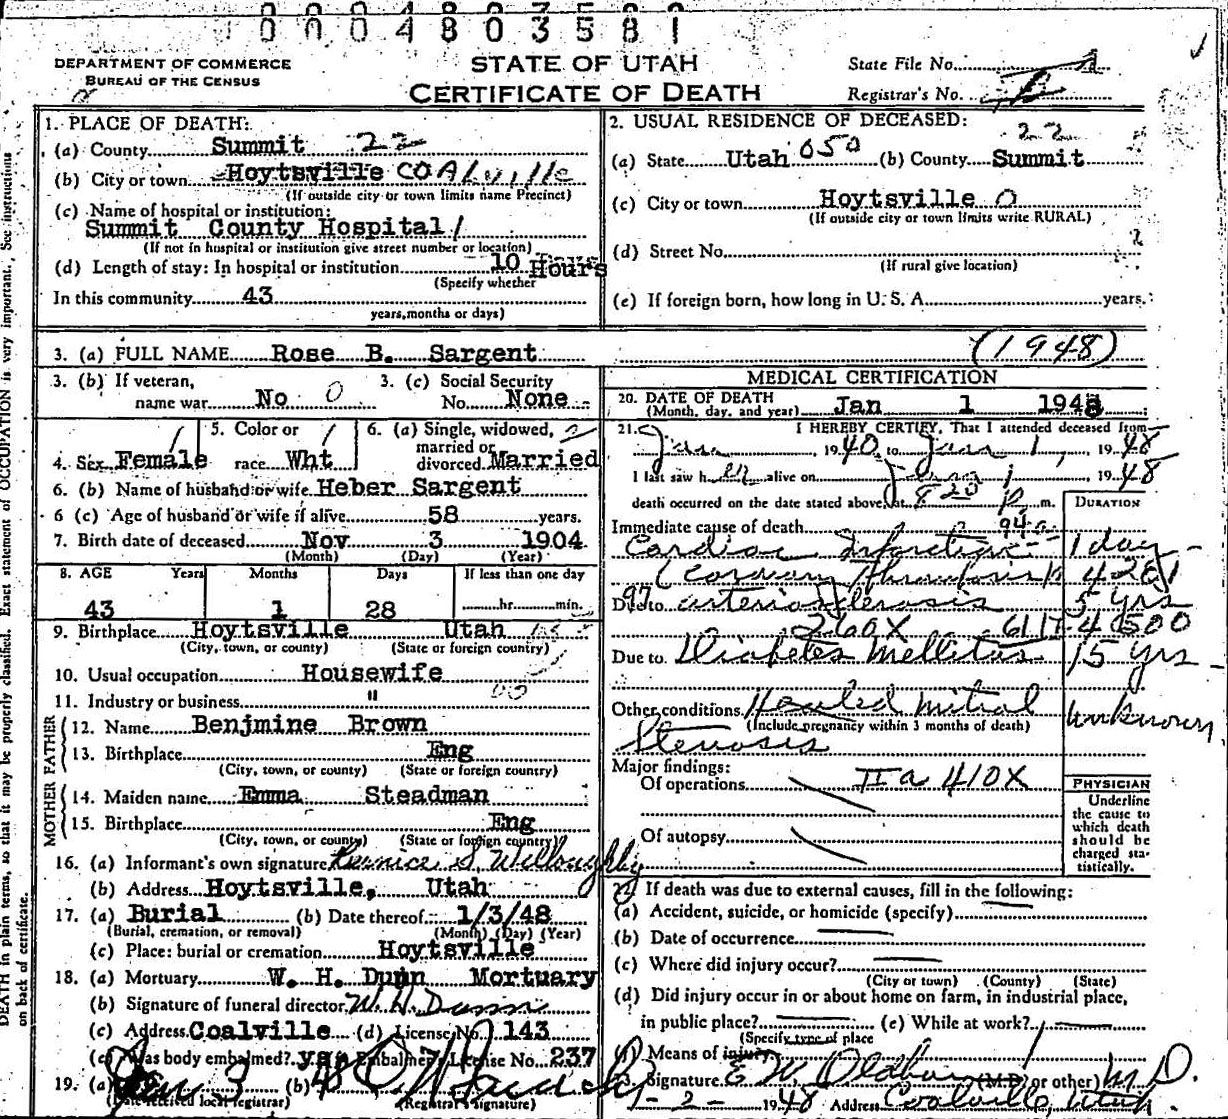 0004803581
DEPARTMENT OF COMMERCE
BUREAU OF THE CENSUS
STATE OF UTAH
CERTIFICATE OF DEATH
State File No.
Registrar's No.
1. PLACE OF DEATH:
(a) County Summit 22
(b) City or town Hoytsville COALville
(If outside city or town limits name Precinct)
(c) Name of hospital or institution:
Summit County Hospital /
(If not in hospital or institution give street number or location)
(d) Length of stay: In hospital or institution 10 Hours
(Specify whether
In this community 43
years, months or days)
2. USUAL RESIDENCE OF DECEASED:
22
(a) State Utah 050 (b) County Summit
(c) City or town Hoytsville 0
(If outside city or town limits write RURAL)
(d) Street No.
(If rural give location)
(e) If foreign born, how long in U. S. A. years.
3. (a) FULL NAME Rose B. Sargent (1948)
3. (b) If veteran, name war No 0
3. (c) Social Security No. None
4. Sex Female
5. Color or race Wht
6. (a) Single, widowed, married or divorced Married
6. (b) Name of husband or wife Heber Sargent
6 (c) Age of husband or wife if alive 58 years.
7. Birth date of deceased Nov 3 1904
(Month) (Day) (Year)
8. AGE Years Months Days If less than one day
43 1 28 hr. min.
9. Birthplace Hoytsville Utah
(City, town, or county) (State or foreign country)
10. Usual occupation Housewife
11. Industry or business "
FATHER
12. Name Benjmine Brown
13. Birthplace Eng
(City, town, or county) (State or foreign country)
MOTHER
14. Maiden name Emma Steadman
15. Birthplace Eng
(City, town, or county) (State or foreign country)
16. (a) Informant's own signature Bernice S. Willoughby
(b) Address Hoytsville, Utah
17. (a) Burial (b) Date thereof 1/3/48
(Burial, cremation, or removal) (Month) (Day) (Year)
(c) Place: burial or cremation Hoytsville
18. (a) Mortuary W. H. Dunn Mortuary
(b) Signature of funeral director W. H. Dunn
(c) Address Coalville (d) License No. 143
(e) Was body embalmed? yes Embalmer's License No. 237
19. (a) Jan 3 (b)
(Date received local registrar) (Registrar's signature)
MEDICAL CERTIFICATION
20. DATE OF DEATH
(Month, day, and year) Jan 1 1948
21. I HEREBY CERTIFY, That I attended deceased from
Jan 1940 to Jan 1, 1948
I last saw h er alive on Jan 1 1948
death occurred on the date stated above, at 8 20 P. m.
DURATION
Immediate cause of death 94a
Cardiac Infarction 1 day
(Coronary Thrombosis) 4201
97 Due to arteriosclerosis 5 yrs
260X
Due to Diabetes Mellitus 15 yrs
Other conditions Healed mitral
(Include pregnancy within 3 months of death)
Stenosis unknown
Major findings:
Of operations IIa 410X
Of autopsy
PHYSICIAN
Underline
the cause to
which death
should be
charged sta-
tistically.
22. If death was due to external causes, fill in the following:
(a) Accident, suicide, or homicide (specify)
(b) Date of occurrence
(c) Where did injury occur?
(City or town) (County) (State)
(d) Did injury occur in or about home on farm, in industrial place,
in public place? (e) While at work?
(Specify type of place
(f) Means of injury
Signature E W Oldham (M.D. or other) M.D.
1-2-1948 Address Coalville, Utah
DEATH in plain terms, so that it may be properly classified. Exact statement of OCCUPATION is very important. See instructions
on back of certificate.